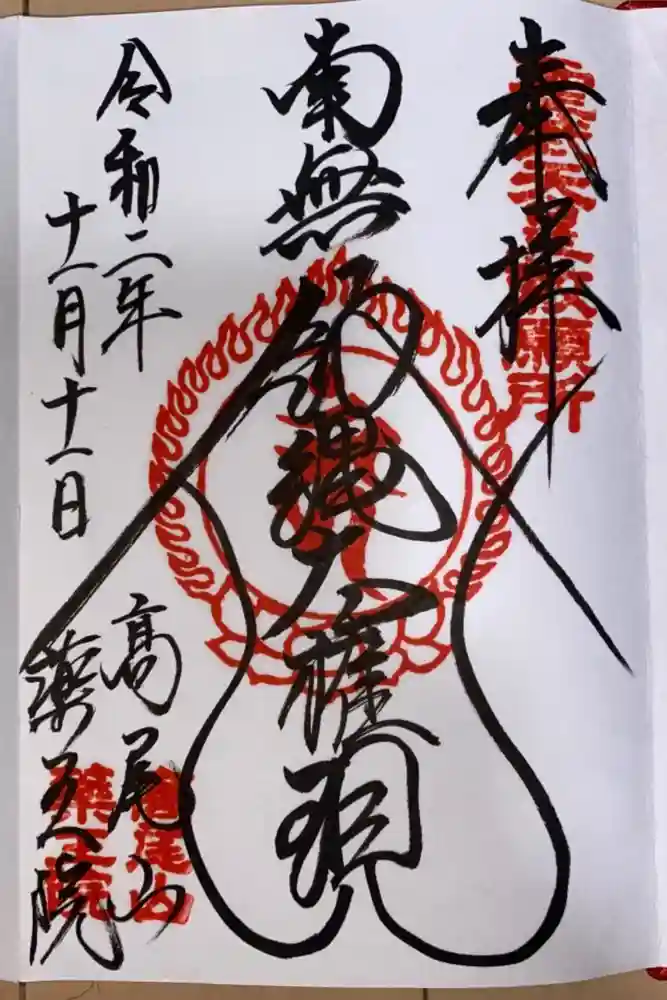 奉拝
南無飯縄大権現
令和二年
十一月十一日
高尾山
薬王院
願所
高尾山
薬王院